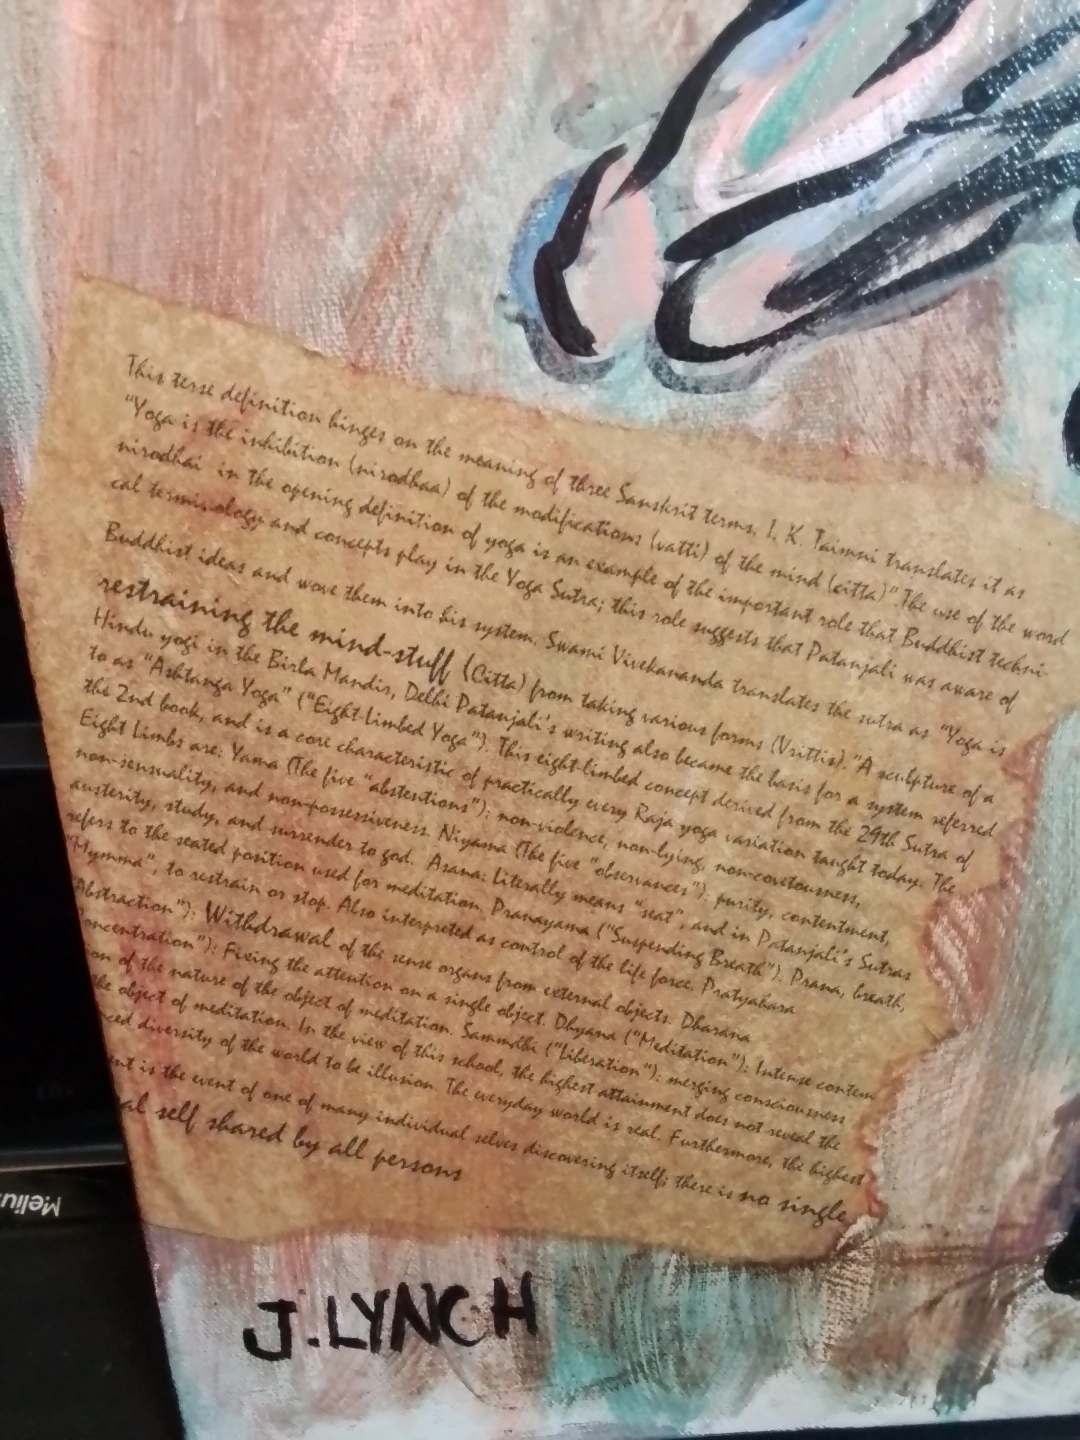 This terse definition hinges on the meaning of three Sanskrit terms. I. K. Taimni translates it as
"Yoga is the inhibition (nirodhaa) of the modifications (vatti) of the mind (citta)".The use of the word
nirodhai in the opening definition of yoga is an example of the important role that Buddhist techni-
cal terminology and concepts play in the Yoga Sutra; this role suggests that Patanjali was aware of
Buddhist ideas and wove them into his system. Swami Vivekananda translates the sutra as "Yoga is
restraining the mind-stuff (Citta) from taking various forms (Vrittis)."A sculpture of a
Hindu yogi in the Birla Mandir, Delhi Patanjali's writing also became the basis for a system referred
to as "Ashtanga Yoga" ("Eight-Limbed Yoga"). This eight-limbed concept derived from the 29th Sutra of
the 2nd book, and is a core characteristic of practically every Raja yoga variation taught today. The
Eight Limbs are: Yama (The five "abstentions"): non-violence, non-lying, non-covetousness,
non-sensuality, and non-possessiveness. Niyama (The five "observances"): purity, contentment,
austerity, study, and surrender to god. Asana: Literally means "seat", and in Patanjali's Sutras
refers to the seated position used for meditation. Pranayama ("Suspending Breath"): Prana, breath,
"Mymma", to restrain or stop. Also interpreted as control of the life force. Pratyahara
"Abstraction"): Withdrawal of the sense organs from external objects. Dharana
oncentration"): Fixing the attention on a single object. Dhyana ("Meditation"): Intense contem
on of the nature of the object of meditation. Sammdhi ("Liberation"): merging consciousness
the object of meditation. In the view of this school, the highest attainment does not reveal the
nced diversity of the world to be illusion. The everyday world is real. Furthermore, the highest
ent is the event of one of many individual selves discovering itself; there is no single
al self shared by all persons
J. LYNCH
Meliu